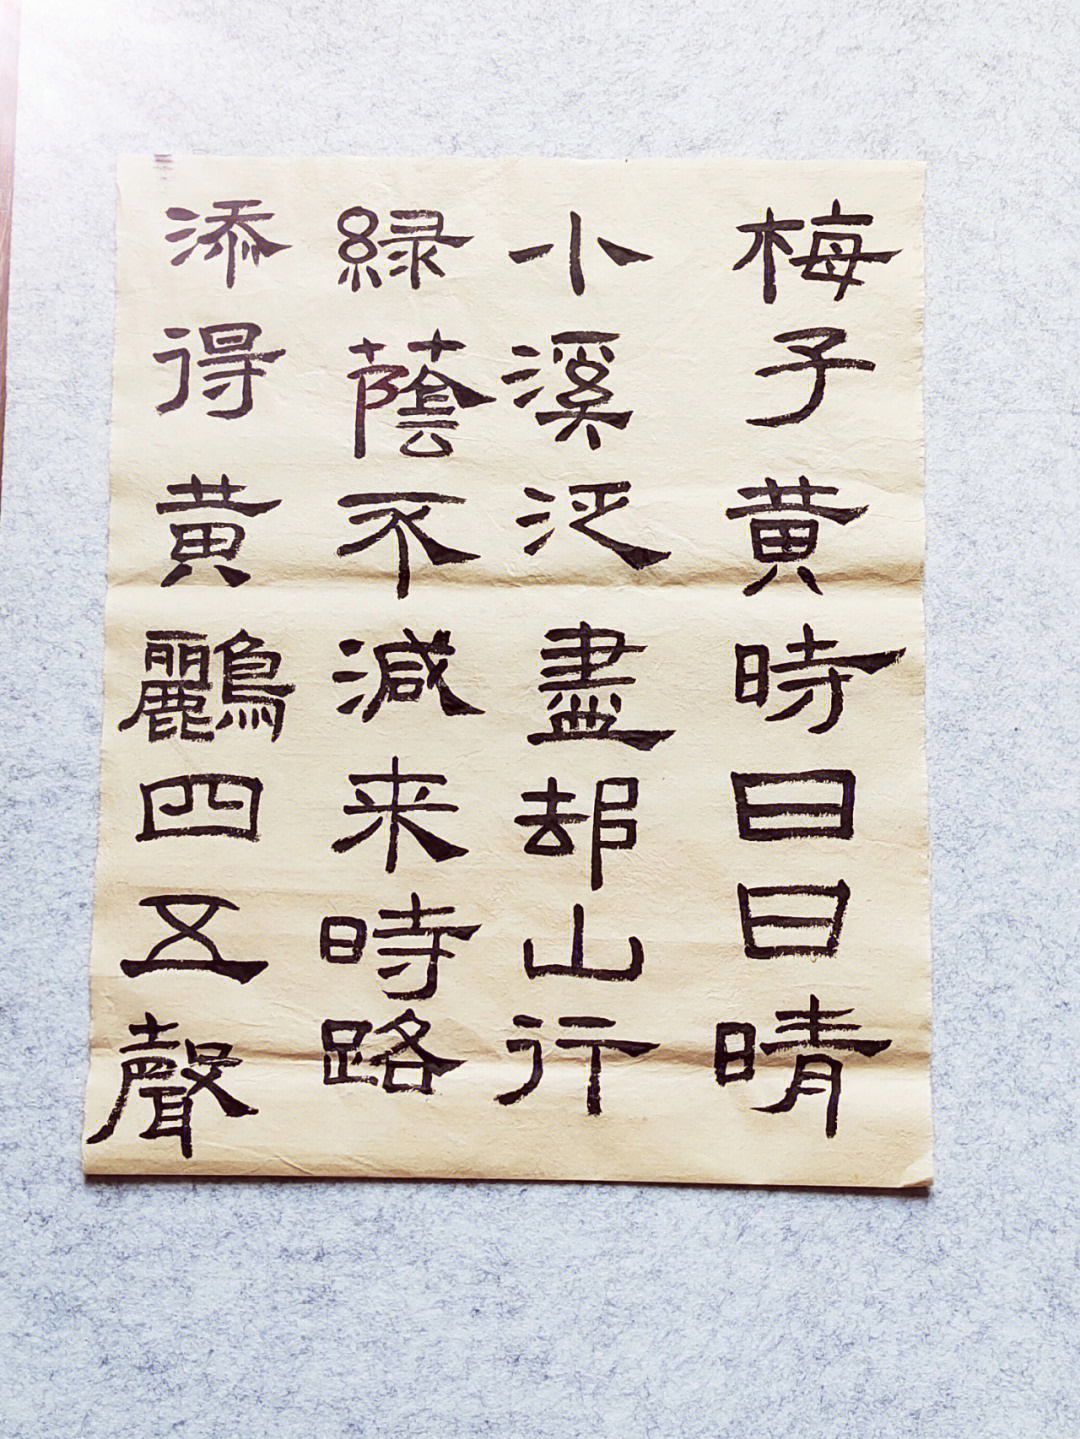 梅子黄時日日晴
小溪泛盡却山行
緑蔭不減来時路
添得黄鸝四五聲